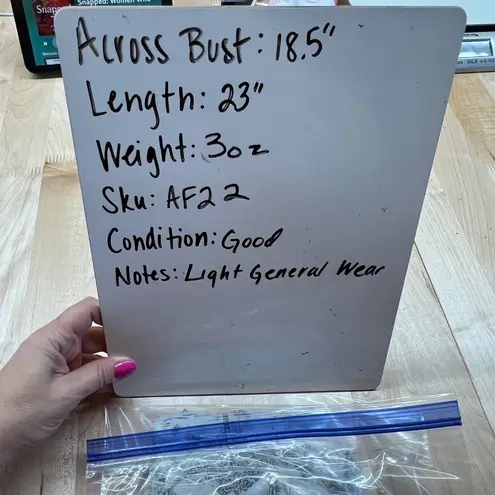 Snapped
Snapped: Women Who
Across Bust: 18.5"
Length: 23"
Weight: 3oz
Sku: AF22
Condition: Good
Notes: Light General Wear